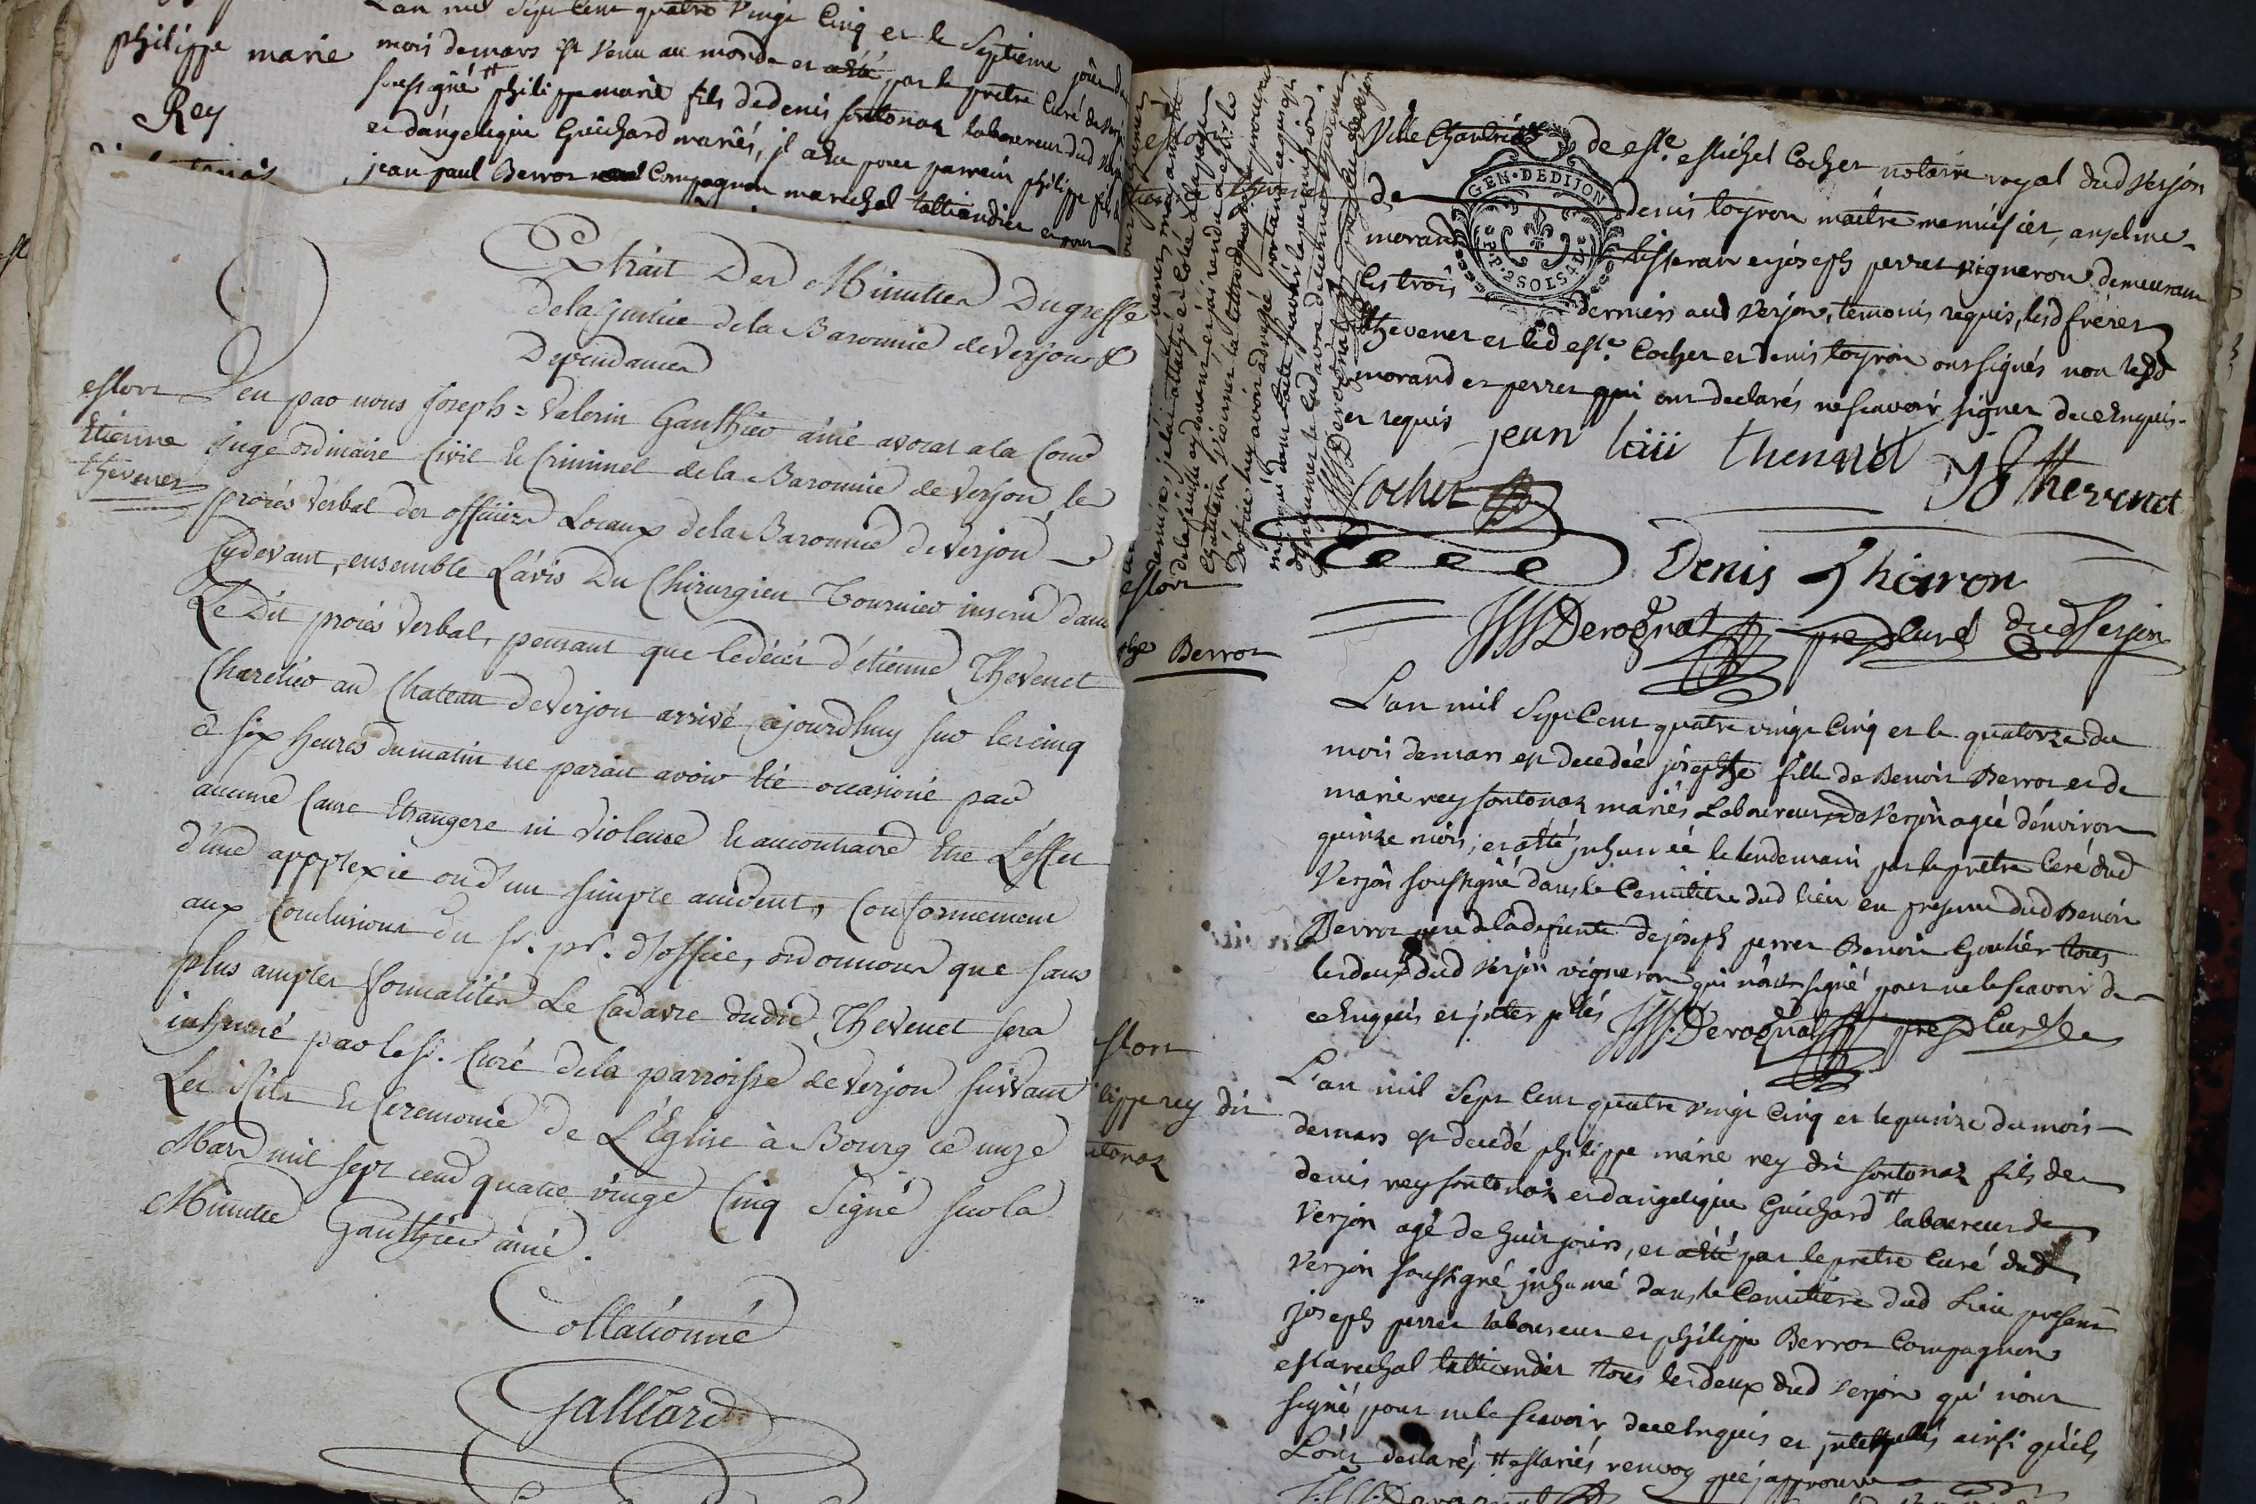 L'an mil Sept Cent quatre Vingt Cinq et le Septieme jour du
philippe marie
Rey
mois de mars est venu au monde et a été par le prêtre Curé de Verjon
soussigné philippe marie fils de denis fontonas laboureur dud Verjon
et d'angelique Guichard mariés, il a eu pour parrein philippe fils
jean paul Berroz Compagnon marechal taillandier et pour
Extrait Des Minuttes Du greffe
de la justice de la Baronnie de Verjon &
Dependances
Mort
Etienne
thevenet
Veu par nous Joseph = Valerin Gauthier ainé avocat a la Cour
juge ordinaire Civil et Criminel de la Baronnie de Verjon, le
procès verbal des officiers Locaux de la Baronnie de Verjon
Cydevant, ensemble L'avis Du Chirurgien Tournier inscrit dans
Le Dit procès Verbal, pensant que le décès d'étienne Thevenet
Charetier au Chateau de Verjon arrivé cejourdhuy sur les cinq
à six heures du matin ne parait avoir Eté occasioné par
aucune Cause Etrangere ni violence Et au contraire Etre L'effet
d'une appoplexie ou d'un simple accident, Conformement
aux Conclusions du Sr. pr. d'office, ordonnons que sans
plus amples formalités Le Cadavre dudit Thevenet sera
inhumé par le Sr. Curé de la parroisse de Verjon suivant
Les Rits Et Ceremonie de L'Eglise à Bourg ce onze
Mars mil sept cend quatre vingt Cinq Signé sur la
Minutte Gauthier ainé.
Collationné
Galliard
de Me. Michel Cocher notaire royal dud Verjon
GEN · DEDIJON
2 SOLS 4 D
de denis toyron maitre menuisier, anselme
morand tisseran et joseph perret vigneron demeurant
les trois derniers aud Verjon, temoins requis, lesd freres
thevenet et led Me. Cocher et denis toyron ont signés non lesd
morand et perret qui ont declarés ne scavoir signer de ce Enquis
et requis
jean thevenet
JB thevenet
Cocher
Denis thoiron
Derognat ptre Curé dud Verjon
Mort
Berroz
L'an mil Sept Cent quatre vingt Cinq et le quatorze du
mois de mars est decedée josephte fille de Benoit Berroz et de
marie rey fontonas mariés Laboureurs de Verjon agée d'environ
quinze mois, et a été inhumée le lendemain par le prêtre Curé dud
Verjon soussigné dans le Cemitiere dud lieu en presence dud Benoit
Berroz pere de la defunte de joseph perret Benoit Goulier tous
les deux dud Verjon vignerons qui n'ont signé pour ne le scavoir de
ce Enquis et interpellés
Derognat ptre Curé
Mort
philippe rey dit
fontonas
L'an mil Sept Cent quatre vingt Cinq et le quinze du mois
de mars est decedé philippe marie rey dit fontonas fils de
denis rey fontonas et d'angelique Guichard laboureur de
Verjon agé de huit jours, et a été par le prêtre Curé dud
Verjon soussigné inhumé dans le Cemitiere dud Lieu presents
joseph perret laboureur et philippe Berroz Compagnon
Marechal taillandier tous les deux dud Verjon qui n'ont
signé pour ne le scavoir de ce Enquis et interpellés ainsi qu'ils
L'ont declaré, mariés renvoy que j'approuve